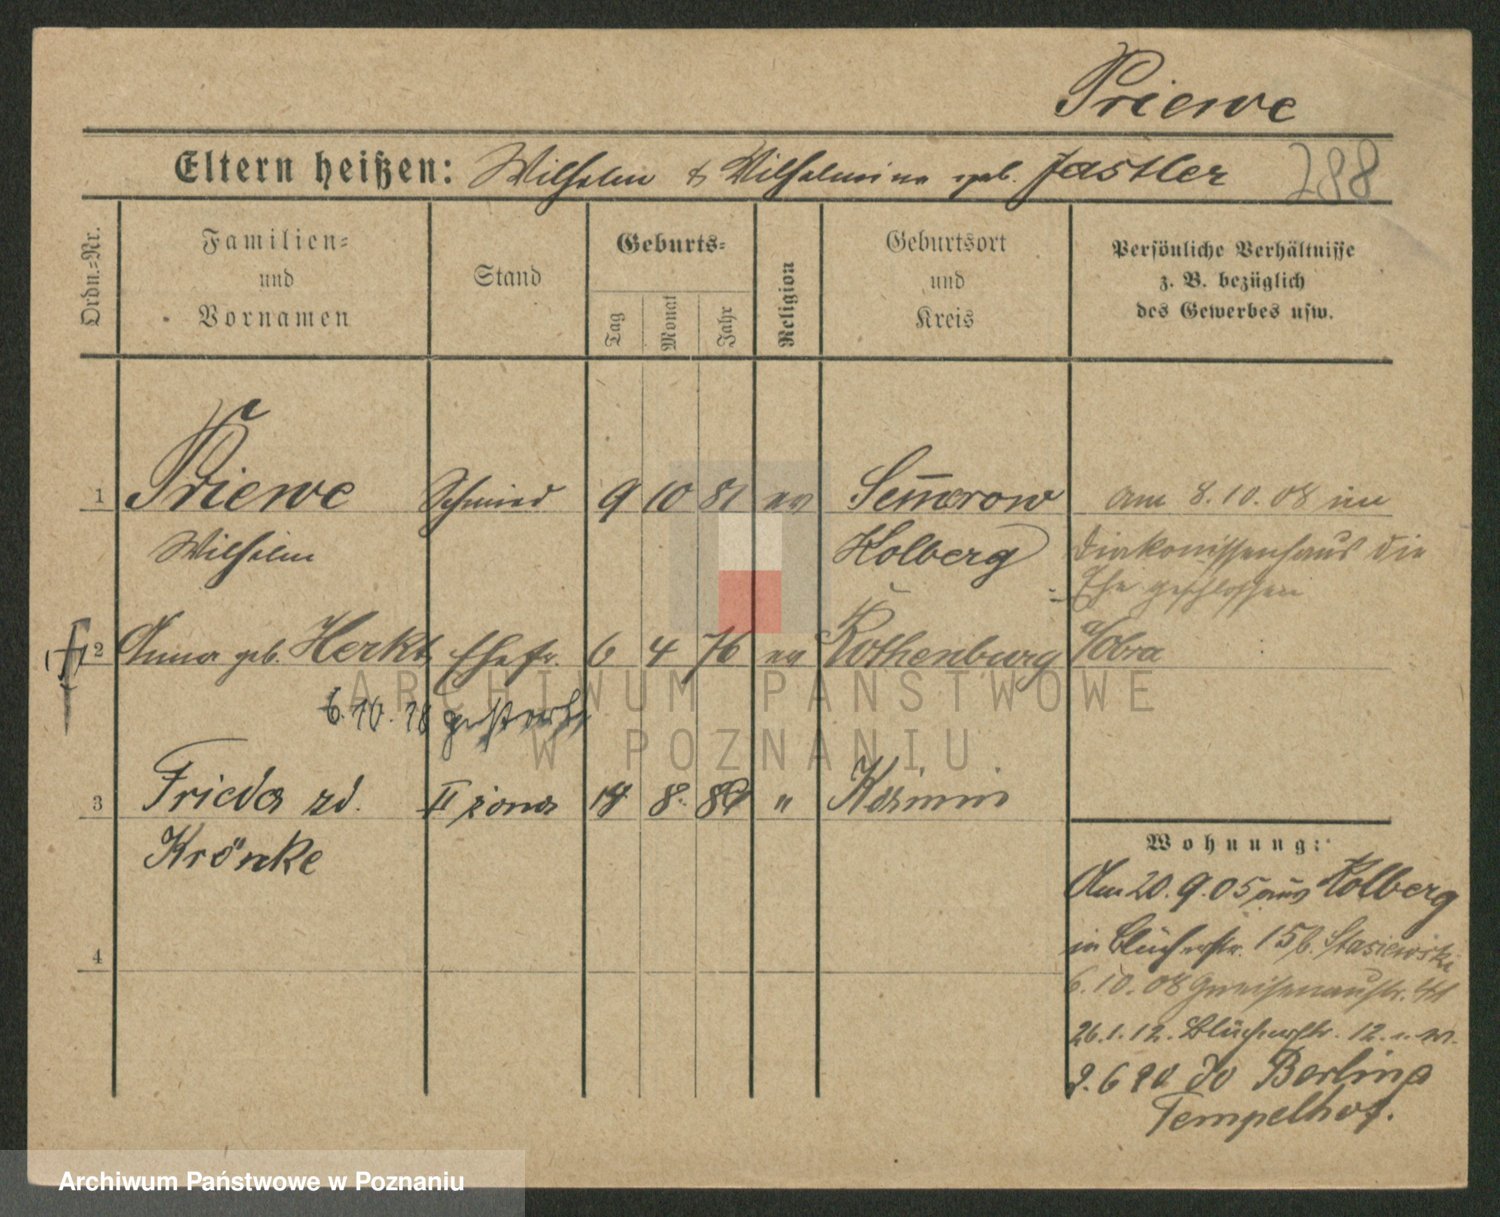 Priewe
Eltern heißen: Wilhelm & Wilhelmine geb. Jastler 288
Ordn.=Nr. Familien= und Vornamen Stand Geburts= Tag Monat Jahr Religion Geburtsort und Kreis Persönliche Verhältnisse z. B. bezüglich des Gewerbes usw.
1 Priewe Schmied 9 10 81 ev Semerow am 8.10.08 im
Wilhelm Kolberg Diakonissenhaus die
Ehe geschlossen
2 Anna geb. Herkt Ehefr. 6 4 76 ev Rothenburg a/Obra
6.10.18 gestorben
3 Frieda zd. II żona 14 8. "
Kröncke
4
Wohnung:
Am 20.9.05 aus Kolberg
in Blücherstr. 15 b. Stasiewski
6.10.08 Gneisenaustr.
26.1.12. Blücherstr. 12.
2.6 20 do Berlina
Tempelhof.
ARCHIWUM PAŃSTWOWE
W POZNANIU
Archiwum Państwowe w Poznaniu